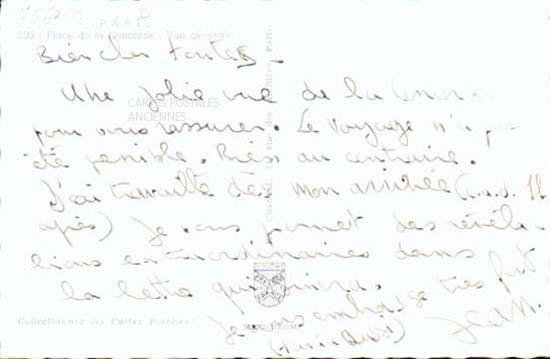 PARIS
229 - Place de la Concorde - Vue générale
Bien cher
Une jolie vue de la
CARTES POSTALES
ANCIENNES
pour vous rassurer. Le voyage n'a pas
été pénible. Bien au contraire.
J'ai travaillé dès mon arrivée (c.a.d. 1h
après) Je vous promet des révéla-
tions extraordinaires dans
la lettre qui suivra.
Je vous embrasse très fort
Collectionnez les Cartes Postales
Jean.